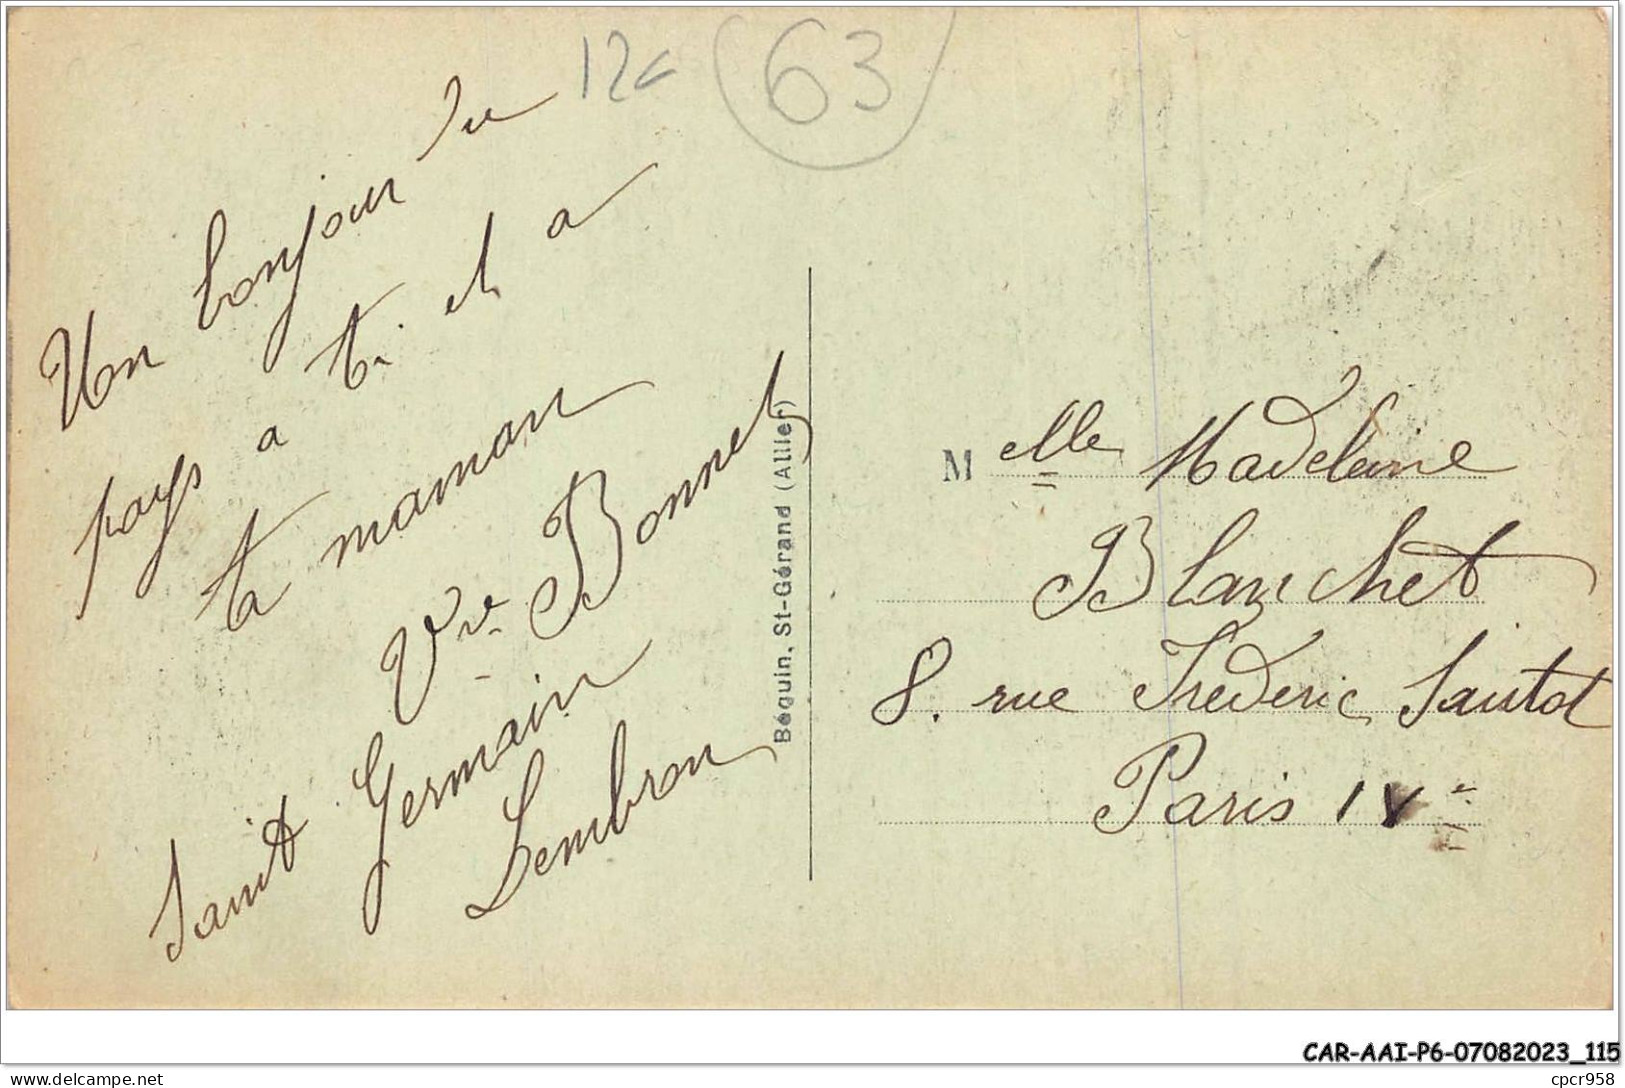 12€
63
Un bonjour du
pays a ti et a
ta maman
Vve Bonnet
Saint Germain
Lembron
Béquin, St-Gérand (Allier)
Melle Madeleine
Blanchet
8. rue Frederic Sautot
Paris IXe
CAR-AAI-P6-07082023_115
delcampe.net
cpcr958